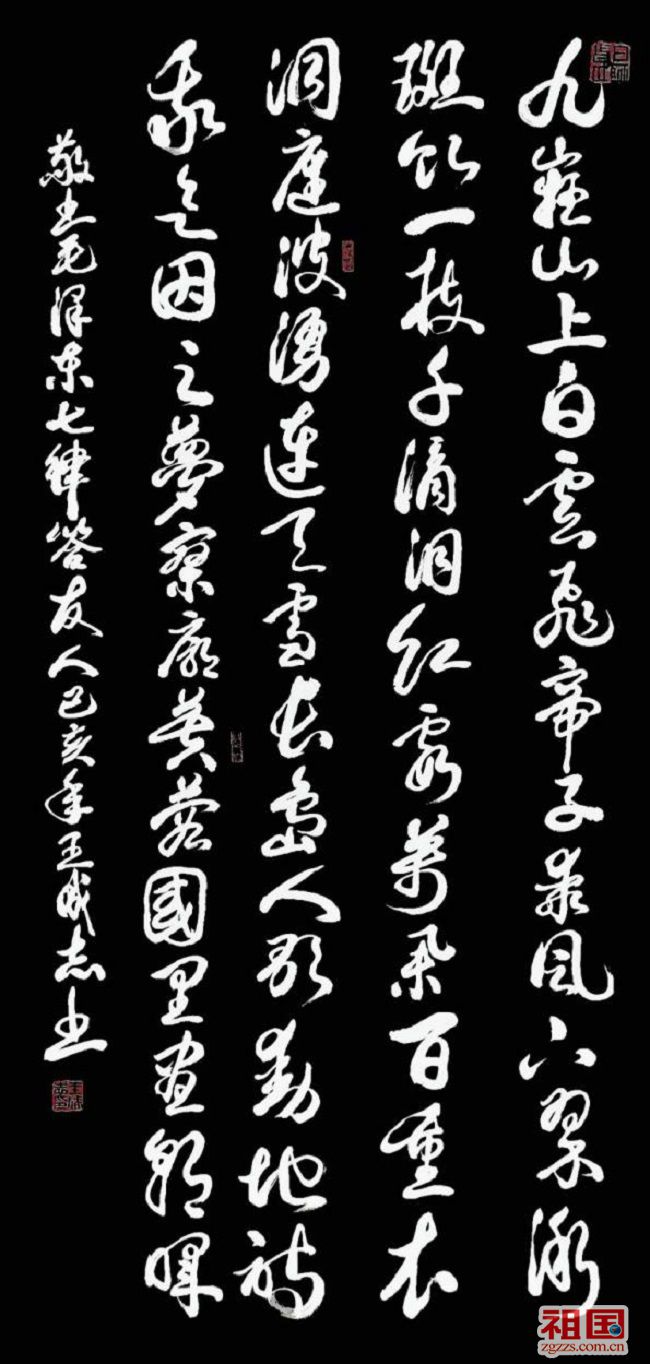 九嶷山上白雲飛帝子乘風下翠微
斑竹一枝千滴泪红霞萬朵百重衣
洞庭波湧連天雪長島人歌動地詩
我欲因之夢寥廓芙蓉國里盡朝暉
敬书毛澤东七律答友人己亥年王成志书
祖国
zgzzs.com.cn